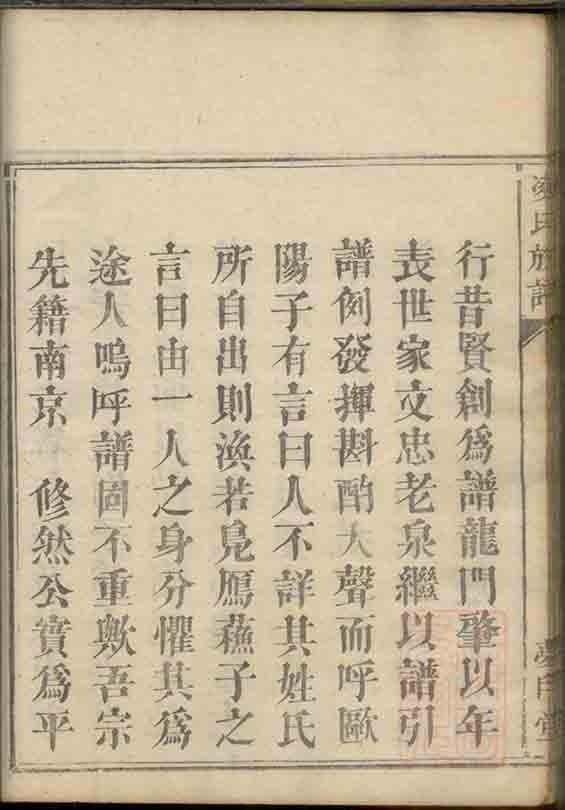 行昔賢創爲譜龍門肇以年
表世家文忠老泉繼以譜引
譜例發揮斟酌大聲而呼歐
陽子有言曰人不詳其姓氏
所自出則渙若鳧鴈蘇子之
言曰由一人之身分懼其爲
途人嗚呼譜固不重歟吾宗
先籍南京 修然公實爲平
氏族譜